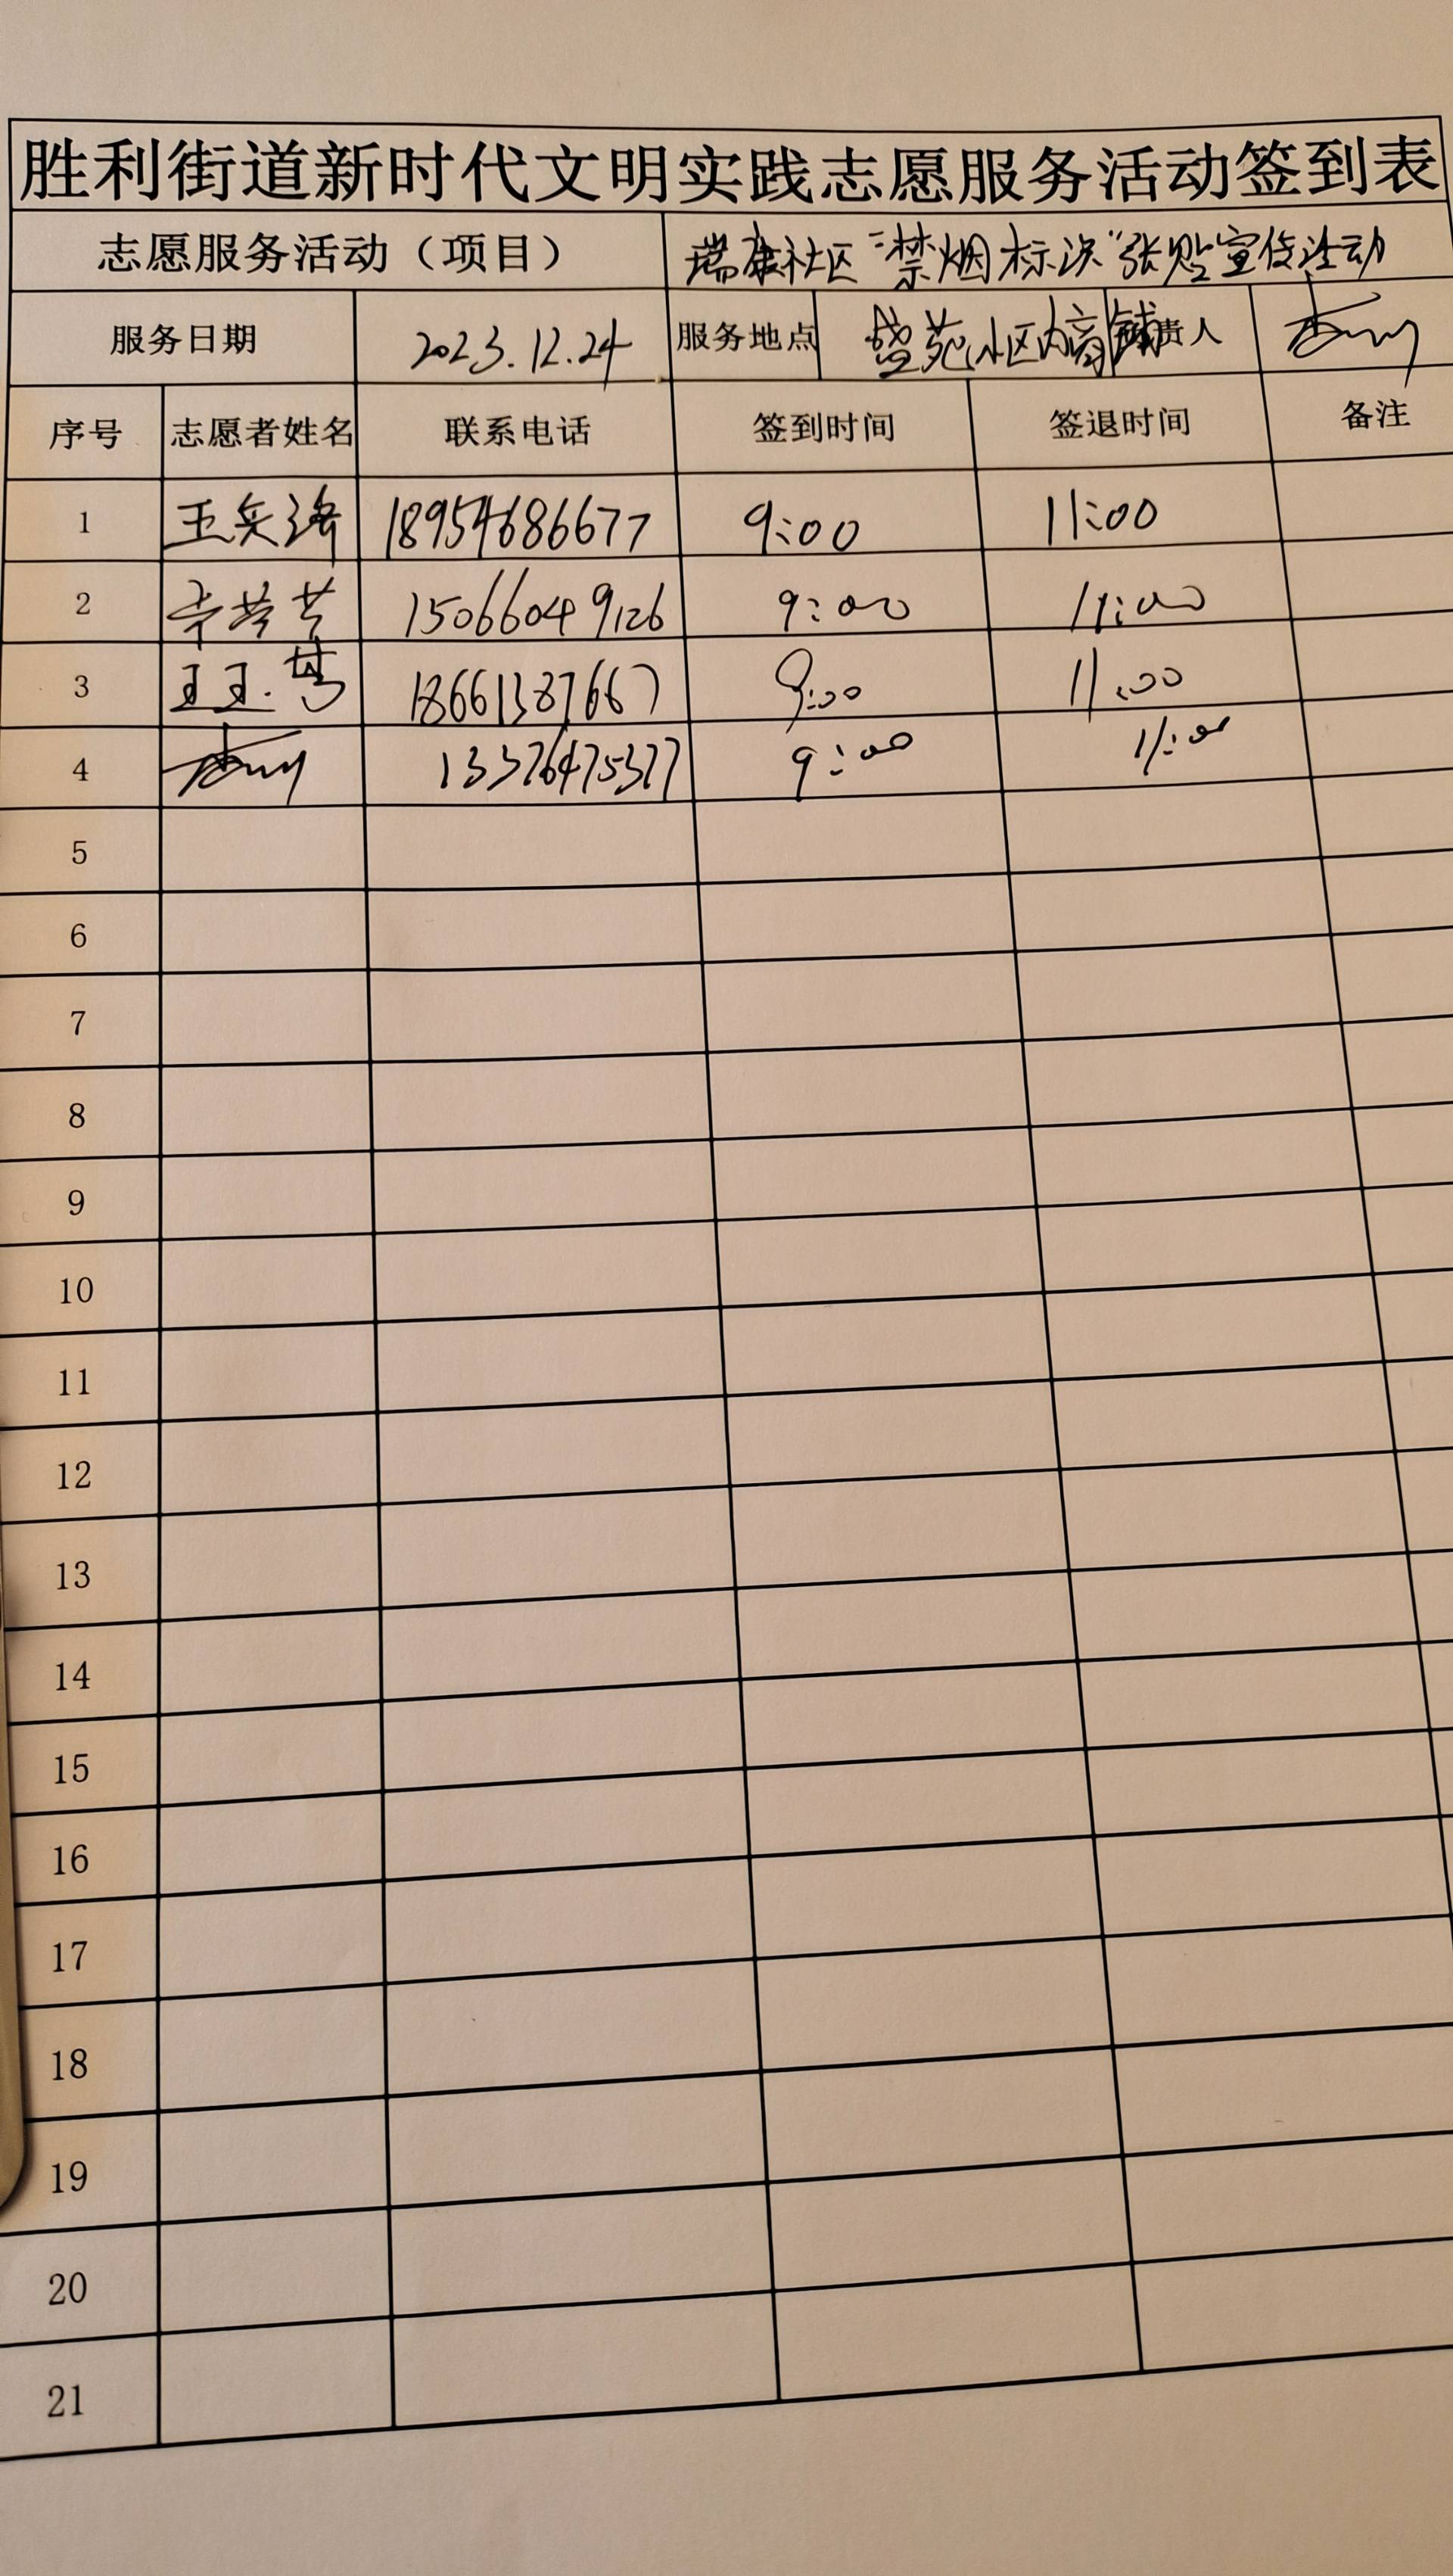 胜利街道新时代文明实践志愿服务活动签到表
志愿服务活动（项目） 瑞康社区“禁烟标识”张贴宣传活动
服务日期 2023.12.24 服务地点 盛苑小区内商铺 负责人
序号 志愿者姓名 联系电话 签到时间 签退时间 备注
1 18954686677 9:00 11:00
2 15066049126 9:00 11:00
3 18661387667 9:00 11:00
4 13376475377 9:00 11:00
5
6
7
8
9
10
11
12
13
14
15
16
17
18
19
20
21